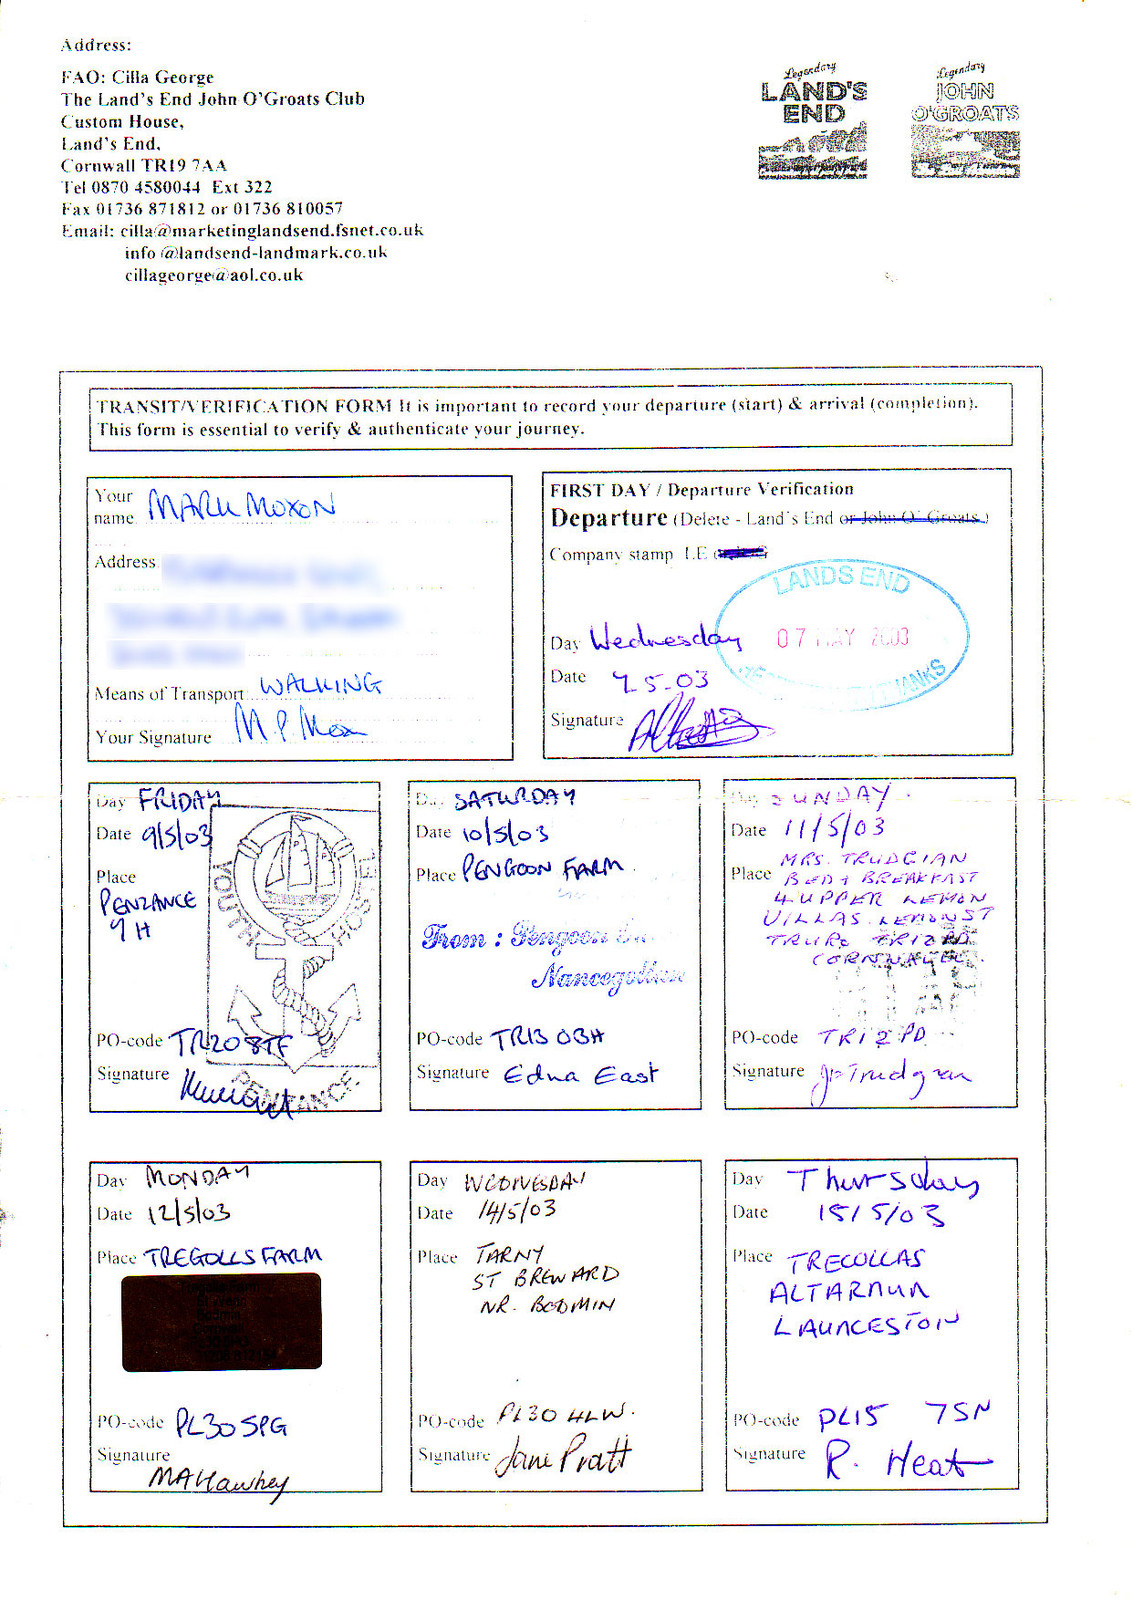 Address:
FAO: Cilla George
The Land's End John O'Groats Club
Custom House,
Land's End,
Cornwall TR19 7AA
Tel 0870 4580044 Ext 322
Fax 01736 871812 or 01736 810057
Email: cilla@marketinglandsend.fsnet.co.uk
info @landsend-landmark.co.uk
cillageorge@aol.co.uk
Legendary
LAND'S
END
Legendary
JOHN
O'GROATS
TRANSIT/VERIFICATION FORM It is important to record your departure (start) & arrival (completion).
This form is essential to verify & authenticate your journey.
Your
name MARK MOXON
Address
Means of Transport: WALKING
Your Signature M.P. Moxon
FIRST DAY / Departure Verification
Departure (Delete - Land's End or John O' Groats )
Company stamp LE
LANDS END
07 MAY 2003
THANKS
Day Wednesday
Date 7.5.03
Signature
Day FRIDAY
Date 9/5/03
Place
PENZANCE
YH
YOUTH HOSTEL
PENZANCE
PO-code TR20 8TF
Signature
Day SATURDAY
Date 10/5/03
Place PENGOON FARM
From : Pengoon
Nancegollan
PO-code TR13 0BH
Signature Edna East
Day SUNDAY.
Date 11/5/03
MRS. TRUDGIAN
Place BED & BREAKFAST
4 UPPER LEMON
VILLAS. LEMON ST
TRURO TR12PD
CORNWALL.
PO-code TR1 2PD
Signature J. Trudgian
Day MONDAY
Date 12/5/03
Place TREGOLLS FARM
Bodmin
PO-code PL30 5PG
Signature
MAHawkey
Day WEDNESDAY
Date 14/5/03
Place TARNY
ST BREWARD
NR. BODMIN
PO-code PL30 4LW.
Signature Jane Pratt
Day Thursday
Date 15/5/03
Place TRECOLLAS
ALTARNUN
LAUNCESTON
PO-code PL15 7SN
Signature R. Heat